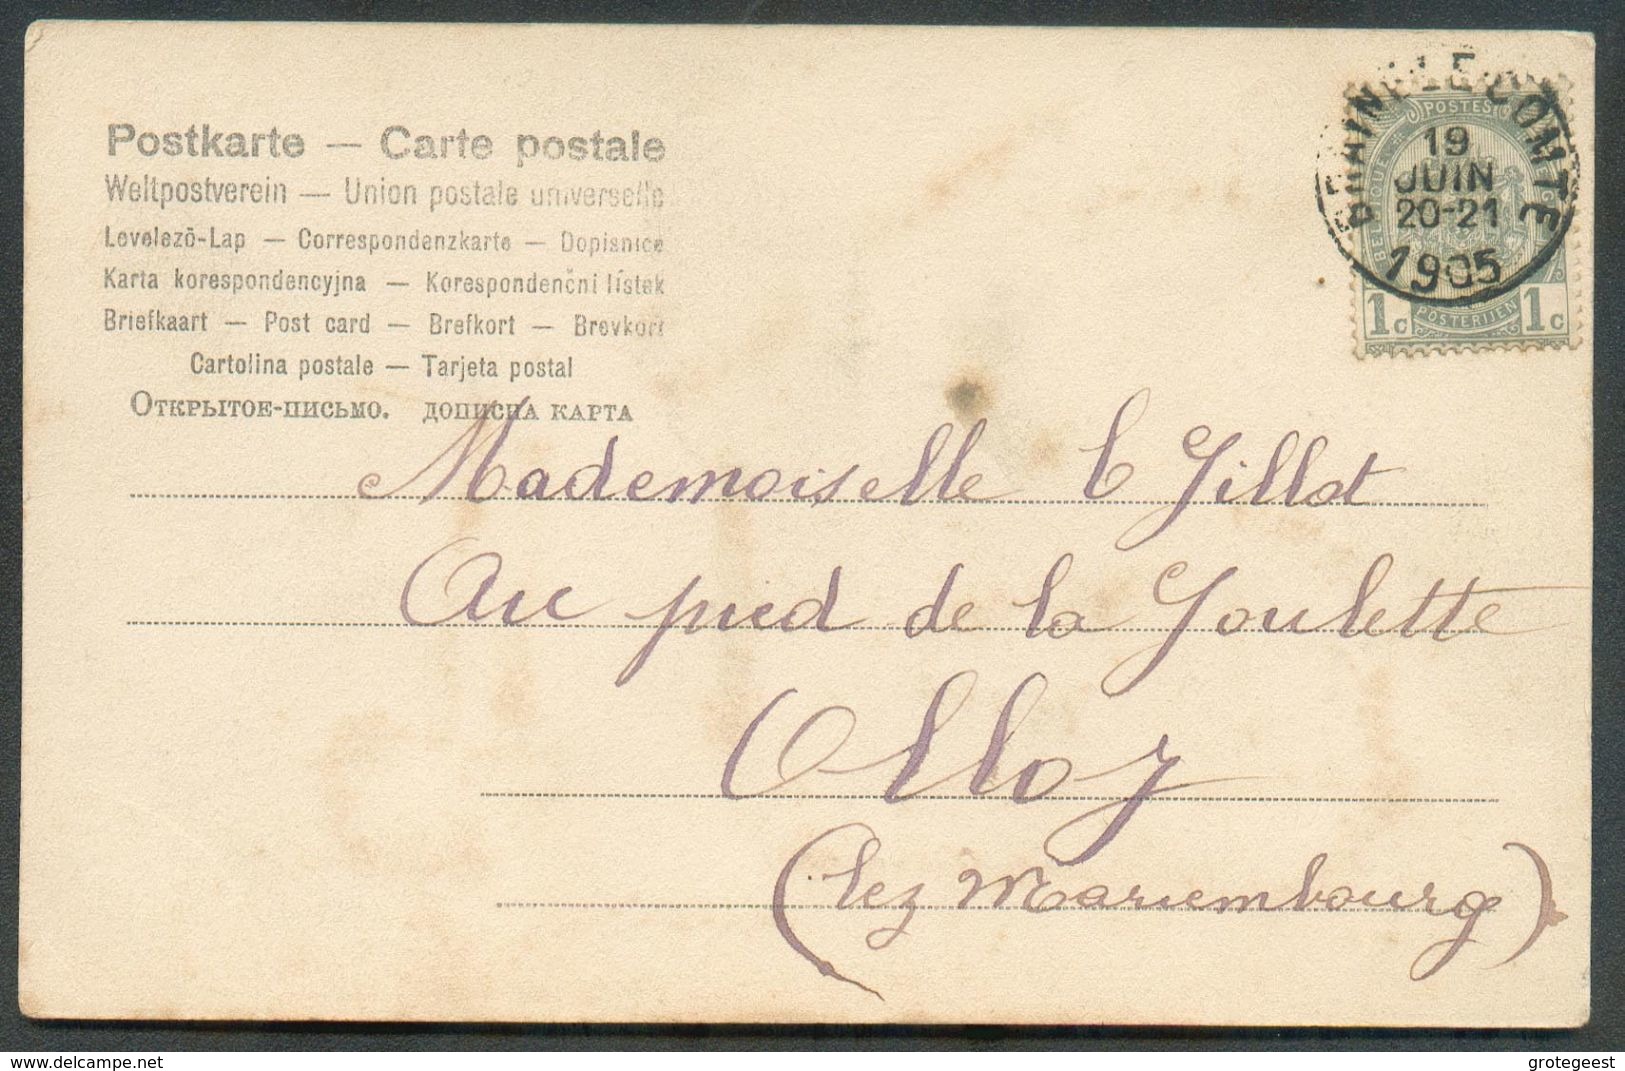 Postkarte — Carte postale
Weltpostverein — Union postale universelle
Levelezõ-Lap — Correspondenzkarte — Dopisnice
Karta korespondencyjna — Korespondenčni lístek
Briefkaart — Post card — Brefkort — Brevkort
Cartolina postale — Tarjeta postal
Открытое-письмо. дописна карта
BRAINE-LE-COMTE
19
JUIN
20-21
1905
POSTES
BELGIQUE
BELGIE
1c POSTERIJEN 1c
Mademoiselle C Gillot
Au pied de la Goulette
Olloy
(lez Mariembourg)
delcampe.net
grotegeest